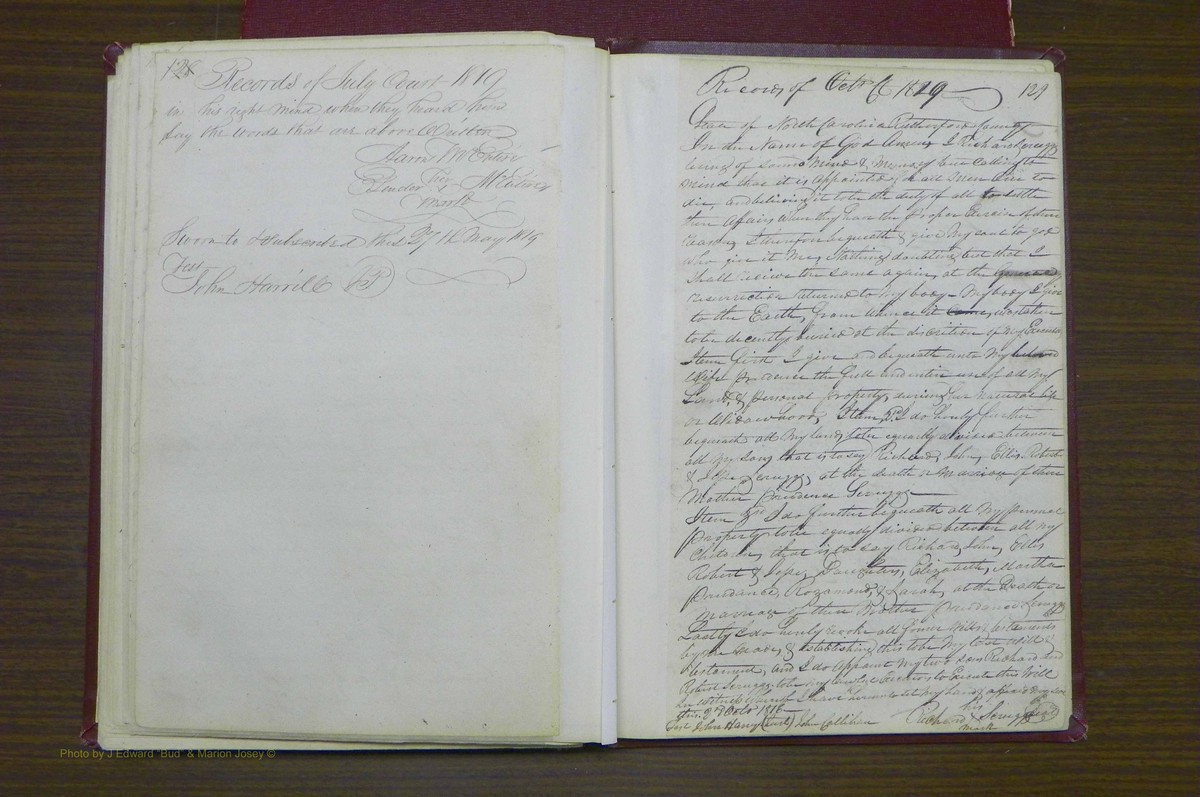 128 Records of July Court 1819
in his right mind when they heard him
say the words that are above Written
Aaron McEntire
her
Mark
Sworn to & subscribed this 27th May 1819
Test
John Harrill (JP)
Records of Octr Ct 1819 129
State of North Carolina Rutherford County
In the Name of God Amen I Richard Scruggs
being of sound Mind & Memory but calling to
mind that it is appointed for all Men to
die, and believing it to be the duty of all to settle
their Affairs when they have the proper Exercise of their
reason, I therefore bequeath & give my soul to god
who give it Me, Nothing doubting but that I
shall receive the same again, at the
resurrection returned to my body - My body I give
to the Earth, from whence it was taken
to be decently buried at the discretion of my Executors
Item first I give and bequeath unto My beloved
Wife Prudence the full and entire use of all my
Land, & personal property, during her natural life
or Widowhood, Item, I do hereby further
bequeath all My land, to be equally divided between
all My Sons that is to say Richard, John, Ellis, Robert
& Scruggs, at the death or Marriage of their
Mother Prudence Scruggs
Item I do further bequeath all My personal
property to be equally divided between all my
Children, that is to say Richard, John, Ellis
Robert & Daughters, Elizabeth, Martha
Prudance, Rosamond, & Sarah, at the Death or
marriage of their Mother Prudance Scruggs
Lastly I do hereby revoke all former Wills, testaments
by me Made, & establishing this to be My last Will &
testament, and I do Appoint My two sons Richard and
Robert Scruggs to be my Executors to Execute this Will
In witness whereof I have hereunto set My hand & affixed my seal
this 9 Octor 1816
Test John Callihan Richard his Scruggs
mark
Photo by J Edward "Bud" & Marion Josey ©